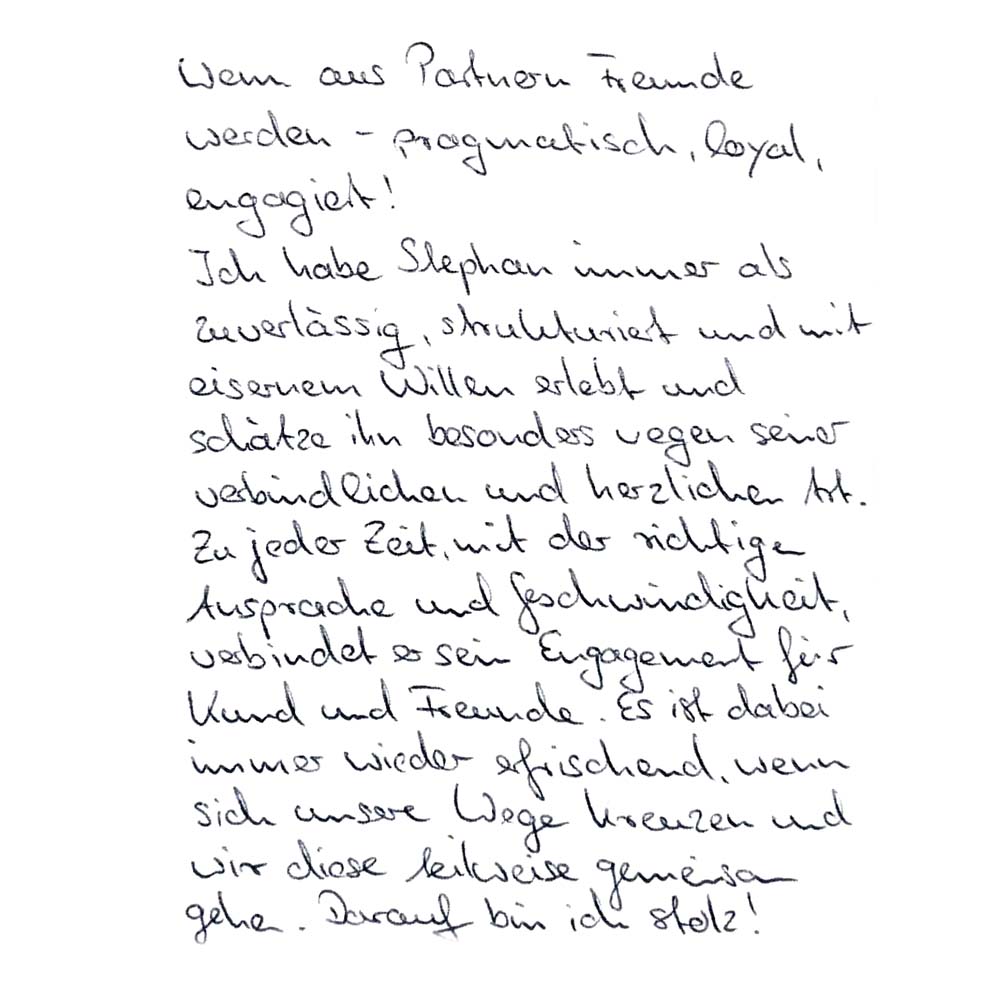 Wenn aus Partnern Freunde
werden - pragmatisch, loyal,
engagiert!
Ich habe Stephan immer als
zuverlässig, strukturiert und mit
eisernem Willen erlebt und
schätze ihn besonders wegen seiner
verbindlichen und herzlichen Art.
Zu jeder Zeit, mit der richtigen
Ansprache und Geschwindigkeit,
verbindet er sein Engagement für
Kund und Freunde. Es ist dabei
immer wieder erfrischend, wenn
sich unsere Wege kreuzen und
wir diese teilweise gemeinsam
gehen. Darauf bin ich stolz!